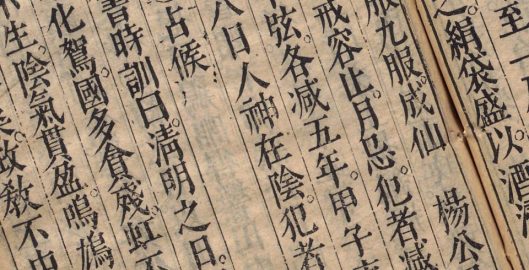 至一
之絹袋盛以酒浸
服九服成仙　楊公
戒容止。月忌犯者減
弦。各减五年。甲子
八日人神在陰。犯者
占候
書時訓曰。淸明之日。
化鴽。國多貪殘。虹不
不生。陰氣貫盈。鳴鳩
故敎不